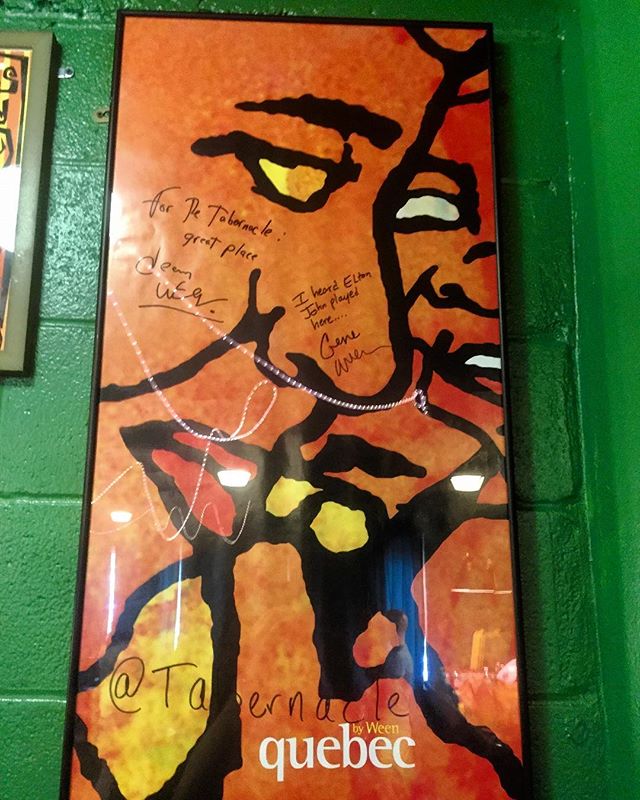 For The Tabernacle:
great place
dean
ween
I heard Elton
John played
here....
Gene
ween
@Tabernacle
by Ween
quebec